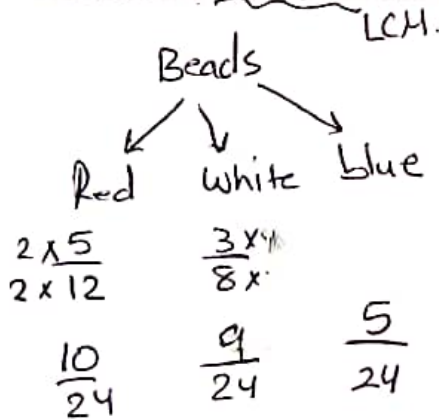 LCM.
Beads
Red White blue
2 x 5 / 2 x 12 3 x / 8 x
10/24 9/24 5/24